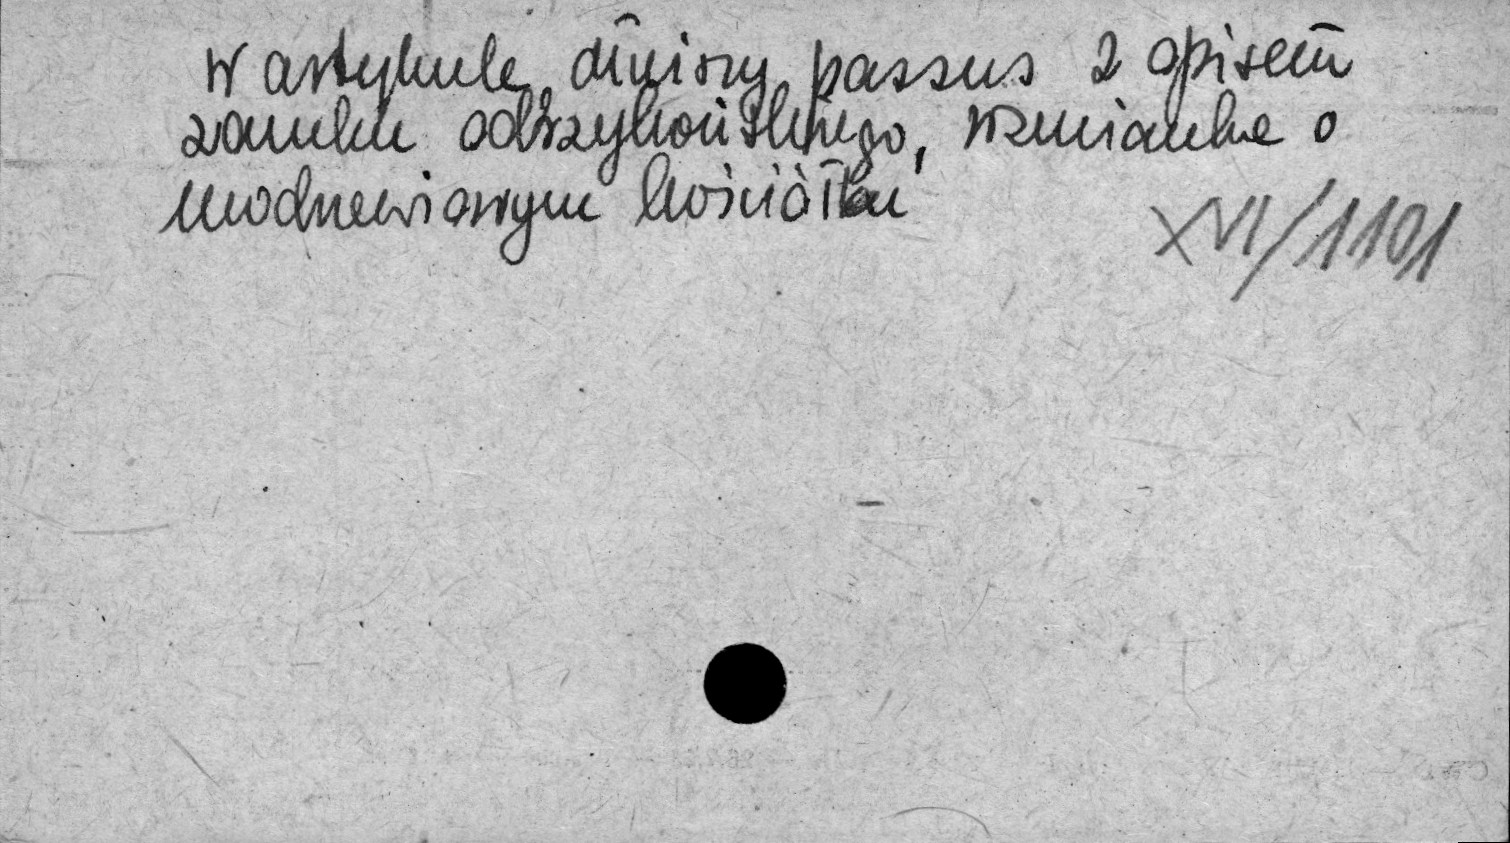 W artykule dłuższy passus z opisem
zamku odrzykońskiego, wzmianka o
modrzewiowym kościółku
XVI/1101